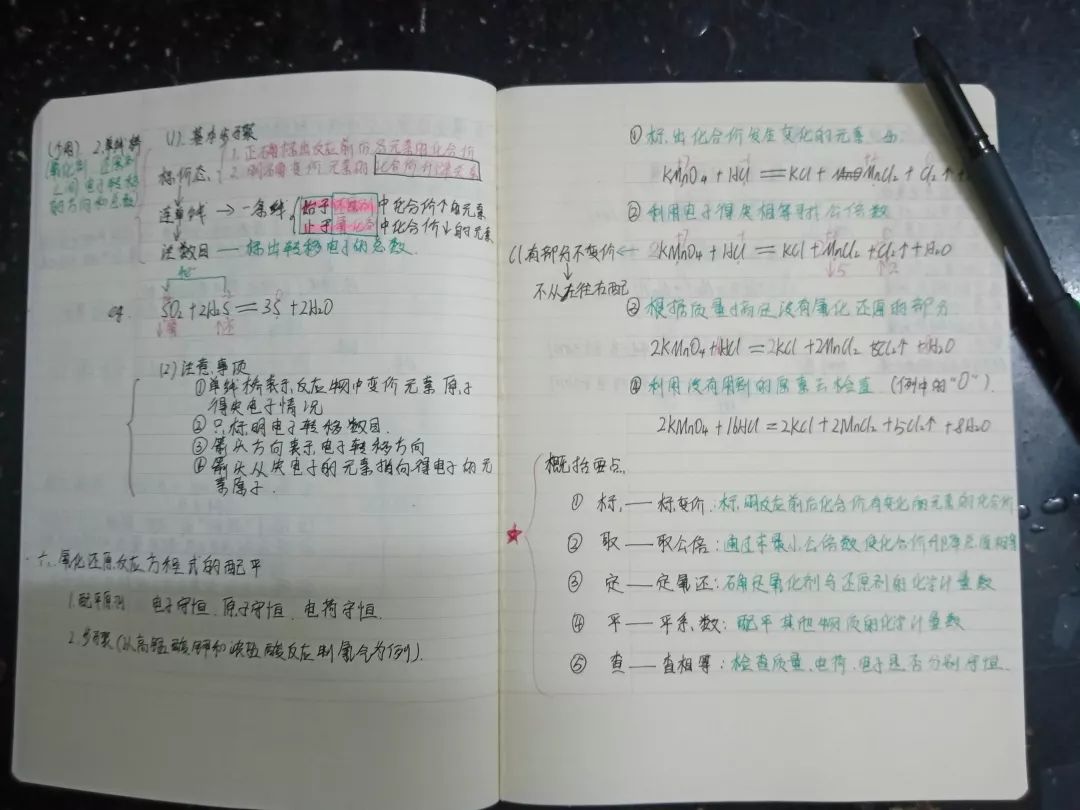 (1). 基本步骤
(少用) 2.单线桥
氧化剂 还原剂
之间电子转移
的方向和总数
标价态
1. 正确标出反应前后各元素的化合价
2. 明确变价元素的化合价升降关系
连单线 → 一条线
始于还原剂中化合价↑的元素
止于氧化剂中化合价↓的元素
注数目 —— 标出转移电子的总数.
4e⁻
eg. SO₂+2H₂S=3S+2H₂O
(2) 注意事项
①单线桥表示反应物中变价元素原子
得失电子情况
② 只标明电子转移数目.
③ 箭头方向表示电子转移方向
④ 箭头从失电子的元素指向得电子的元
素原子.
六. 氧化还原反应方程式的配平
1.配平原则 电子守恒、原子守恒、电荷守恒.
2.步骤(以高锰酸钾和浓盐酸反应制氯气为例).
① 标出化合价发生变化的元素
KMnO₄ + HCl = KCl + MnCl₂ + Cl₂↑ +
② 利用电子得失相等寻找公倍数
Cl有部分不变价 ← 2KMnO₄ + HCl = KCl + MnCl₂ + Cl₂↑ + H₂O
↓5 ↑2
不从左往右配
③ 根据质量守恒定没有氧化还原的部分
2KMnO₄+HCl = 2KCl + 2MnCl₂ 5Cl₂↑ + 8H₂O
④ 利用没有用到的原素去检查. (例中的"O").
2KMnO₄+16HCl = 2KCl + 2MnCl₂ + 5Cl₂↑ + 8H₂O
概括要点.
① 标. —— 标变价: 标明反应前后化合价有变化的元素的化合价
② 取 —— 取公倍: 通过求最小公倍数使化合价升降总值相等
③ 定 —— 定氧还: 确定氧化剂与还原剂的化学计量数
④ 平 —— 平系数: 配平其他物质的化学计量数
⑤ 查 —— 查相等: 检查质量、电荷、电子是否分别守恒.